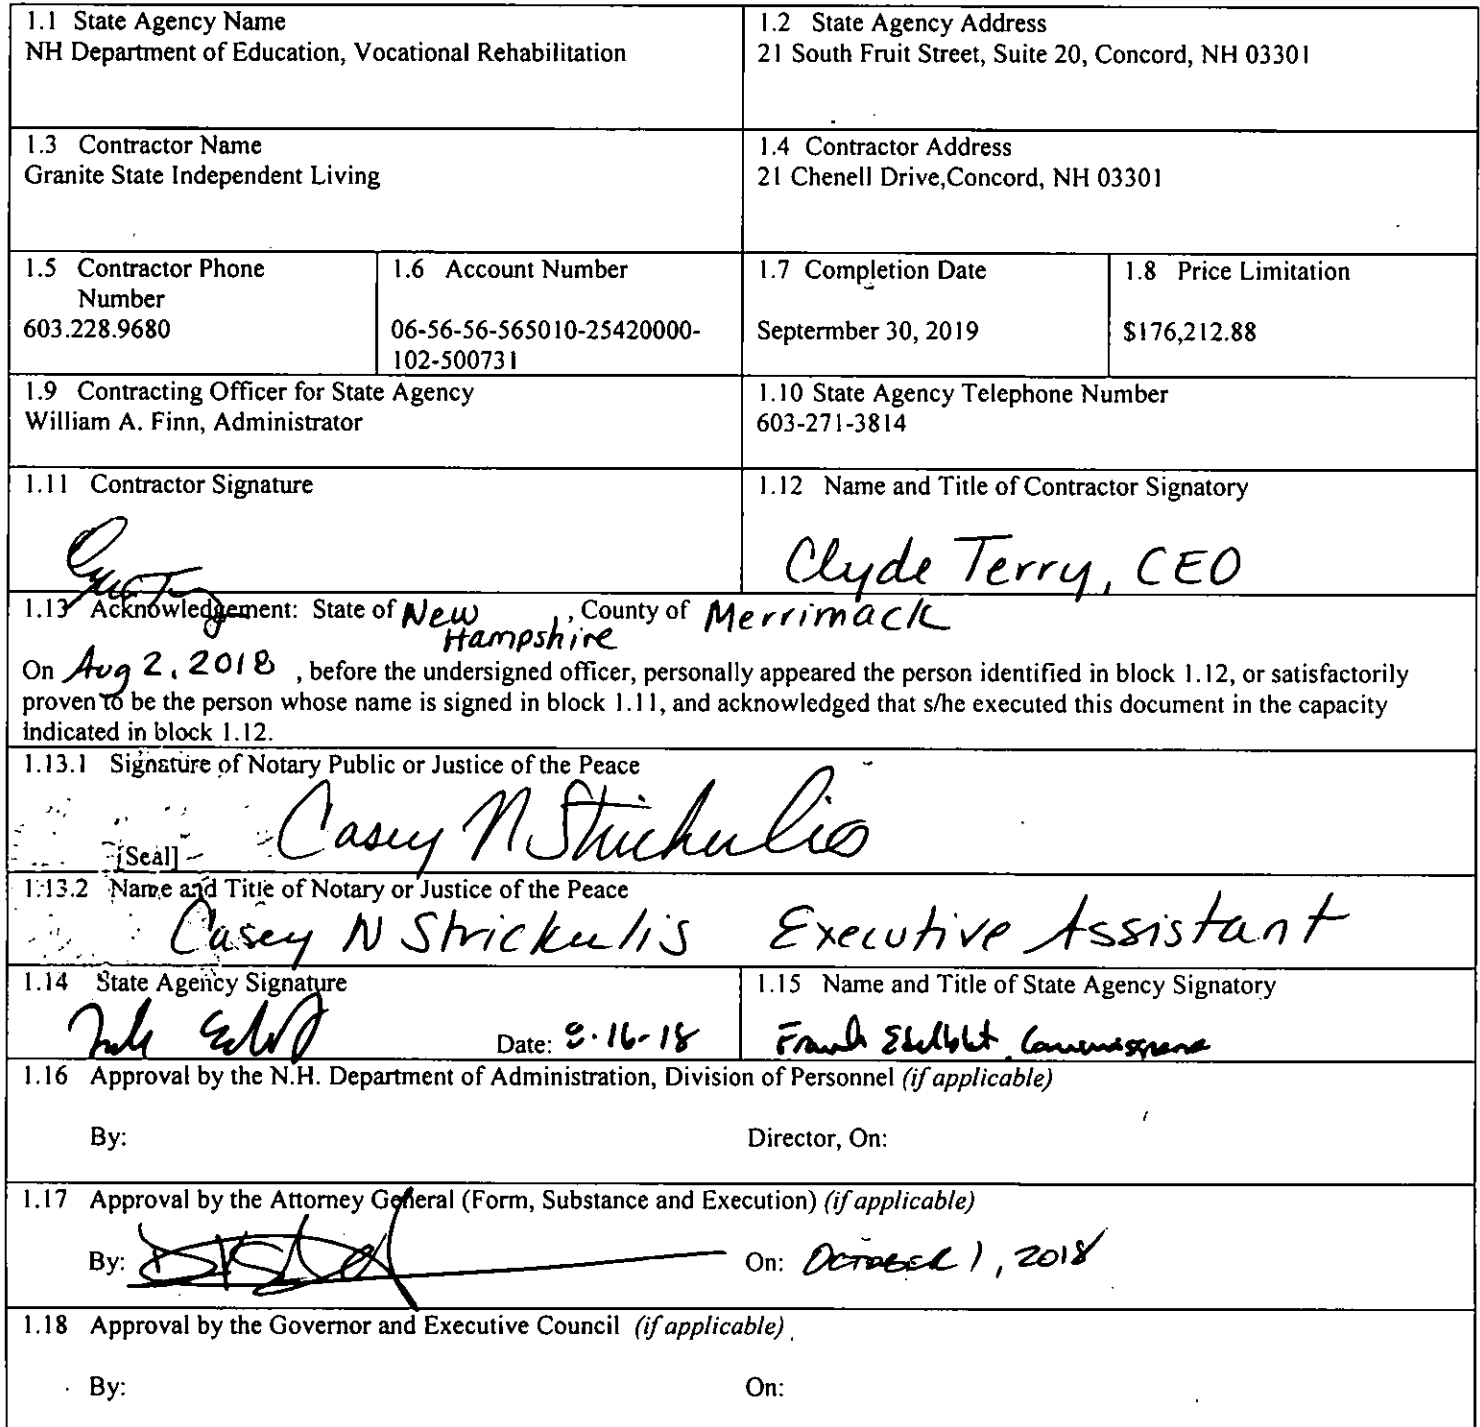 1.1 State Agency Name
NH Department of Education, Vocational Rehabilitation
1.2 State Agency Address
21 South Fruit Street, Suite 20, Concord, NH 03301
1.3 Contractor Name
Granite State Independent Living
1.4 Contractor Address
21 Chenell Drive,Concord, NH 03301
1.5 Contractor Phone
Number
603.228.9680
1.6 Account Number
06-56-56-565010-25420000-
102-500731
1.7 Completion Date
Septermber 30, 2019
1.8 Price Limitation
$176,212.88
1.9 Contracting Officer for State Agency
William A. Finn, Administrator
1.10 State Agency Telephone Number
603-271-3814
1.11 Contractor Signature
1.12 Name and Title of Contractor Signatory
Clyde Terry, CEO
1.13 Acknowledgement: State of New Hampshire, County of Merrimack
On Aug 2, 2018, before the undersigned officer, personally appeared the person identified in block 1.12, or satisfactorily
proven to be the person whose name is signed in block 1.11, and acknowledged that s/he executed this document in the capacity
indicated in block 1.12.
1.13.1 Signature of Notary Public or Justice of the Peace
Casey N Strickulis
[Seal]
1.13.2 Name and Title of Notary or Justice of the Peace
Casey N Strickulis Executive Assistant
1.14 State Agency Signature
Date: 8-16-18
1.15 Name and Title of State Agency Signatory
Frank
1.16 Approval by the N.H. Department of Administration, Division of Personnel (if applicable)
By: Director, On:
1.17 Approval by the Attorney General (Form, Substance and Execution) (if applicable)
By: On: October 1, 2018
1.18 Approval by the Governor and Executive Council (if applicable)
By: On: